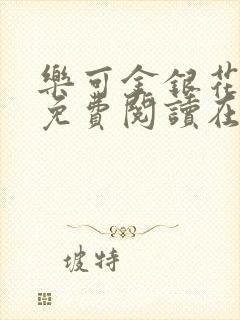 樂可金銀花
免費閱讀在
坡特